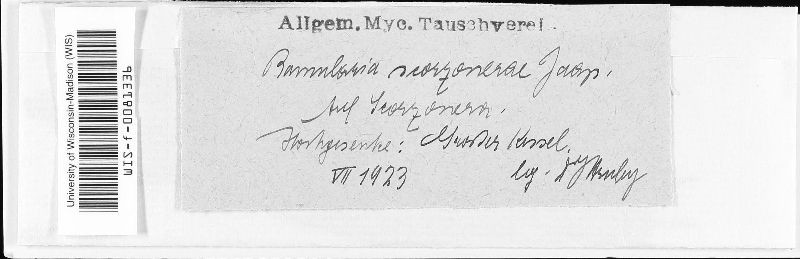 University of Wisconsin-Madison (WIS)
WIS-f-0081336
Allgem. Myc. Tauschverei
Ramularia scorzonerae Jaap.
Auf Scorzonera.
Hochgesenke: Grosser Kessel.
VII 1923
leg. Dr J Hruby